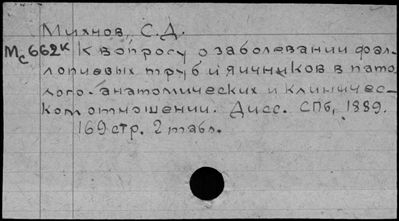 Михнов, С.Д.
Мс662к К вопросу о заболевании фал-
лопиевых труб и яичников в пато-
лого-анатомических и клиничес-
ком отношении. Дисс. СПб, 1889.
169 стр. 2 табл.